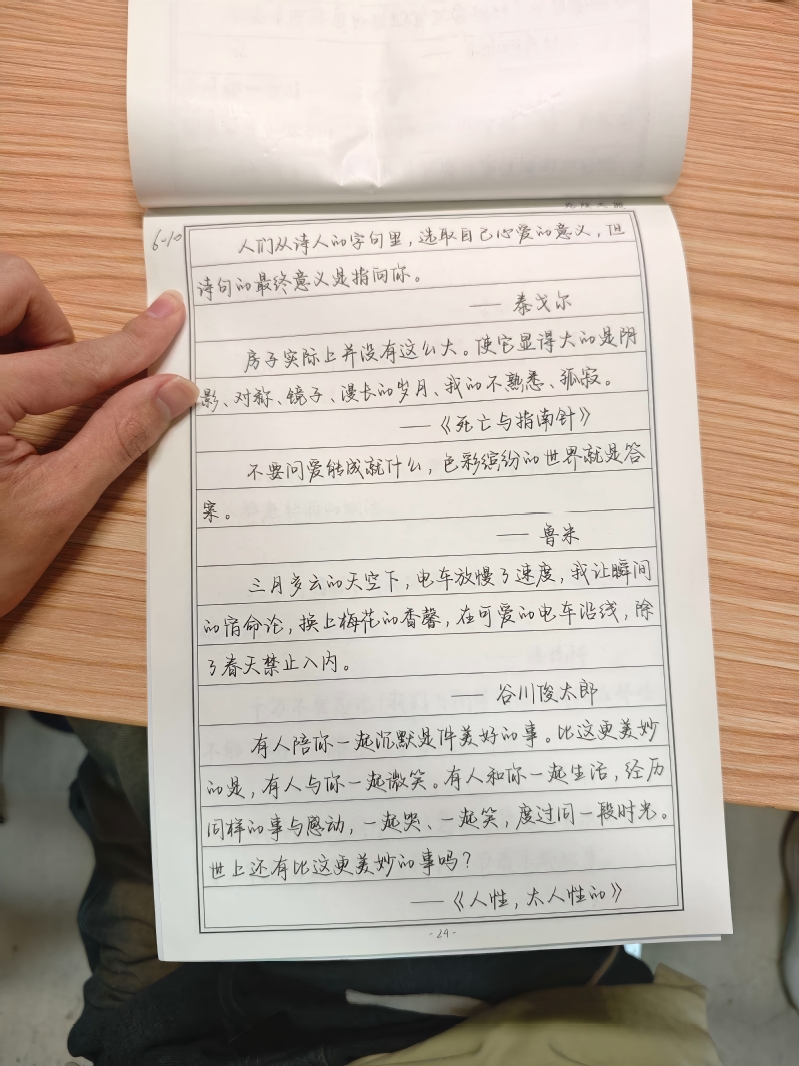 6-10
人们从诗人的字句里，选取自己心爱的意义，但
诗句的最终意义是指向你。
—— 泰戈尔
房子实际上并没有这么大。使它显得大的是阴
影、对称、镜子、漫长的岁月、我的不熟悉、孤寂。
——《死亡与指南针》
不要问爱能成就什么，色彩缤纷的世界就是答
案。
—— 鲁米
三月多云的天空下，电车放慢了速度，我让瞬间
的宿命论，换上梅花的香馨，在可爱的电车沿线，除
了春天禁止入内。
—— 谷川俊太郎
有人陪你一起沉默是件美好的事。比这更美妙
的是，有人与你一起微笑。有人和你一起生活，经历
同样的事与感动，一起哭、一起笑，度过同一段时光。
世上还有比这更美妙的事吗？
——《人性，太人性的》
- 24 -